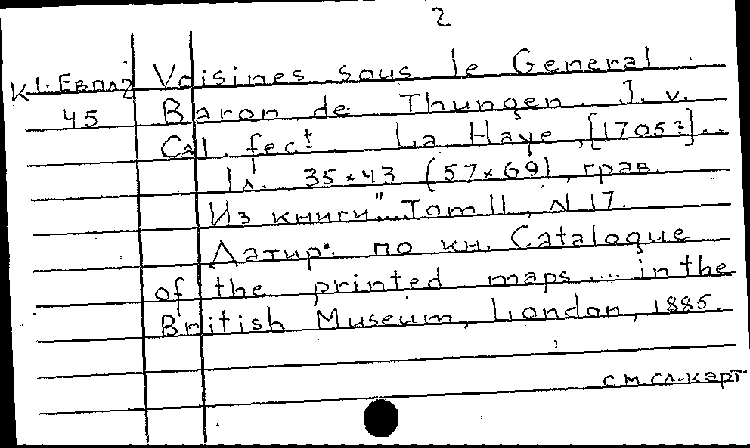 2
К1.Евпл2 Voisines sous le General
45 Baron de Thungen. J. v.
Cal. fect. La Haye, [1705?]..
1л. 35×43 (57×69), грав.
Из книги: "Tom II, N 17.
Датир. по кн. Catalogue
of the printed maps ... in the
British Museum, London, 1885.
см.сл.карт